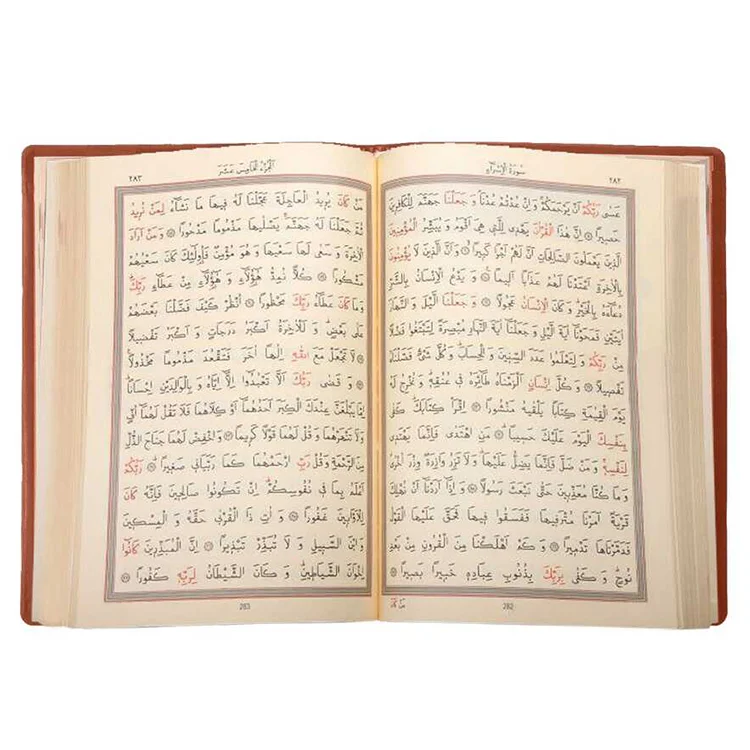 سُورَةُ الْاِسْرَاءِ
٢٨٢
عَسٰى رَبُّكُمْ اَنْ يَرْحَمَكُمْ وَ اِنْ عُدْتُمْ عُدْنَا وَ جَعَلْنَا جَهَنَّمَ لِلْكَافِرِينَ
حَصِيرًا اِنَّ هٰذَا الْقُرْاٰنَ يَهْدِى لِلَّتِى هِىَ اَقْوَمُ وَ يُبَشِّرُ الْمُؤْمِنِينَ
الَّذِينَ يَعْمَلُونَ الصَّالِحَاتِ اَنَّ لَهُمْ اَجْرًا كَبِيرًا وَ اَنَّ الَّذِينَ لَا يُؤْمِنُونَ
بِالْاٰخِرَةِ اَعْتَدْنَا لَهُمْ عَذَابًا اَلِيمًا وَ يَدْعُ الْاِنْسَانُ بِالشَّرِّ
دُعَاءَهُ بِالْخَيْرِ وَ كَانَ الْاِنْسَانُ عَجُولًا وَ جَعَلْنَا الَّيْلَ وَ النَّهَارَ
اٰيَتَيْنِ فَمَحَوْنَا اٰيَةَ الَّيْلِ وَ جَعَلْنَا اٰيَةَ النَّهَارِ مُبْصِرَةً لِتَبْتَغُوا فَضْلًا
مِنْ رَبِّكُمْ وَ لِتَعْلَمُوا عَدَدَ السِّنِينَ وَ الْحِسَابَ وَ كُلَّ شَىْءٍ فَصَّلْنَاهُ
تَفْصِيلًا وَ كُلَّ اِنْسَانٍ اَلْزَمْنَاهُ طَائِرَهُ فِى عُنُقِهِ وَ نُخْرِجُ لَهُ
يَوْمَ الْقِيٰمَةِ كِتَابًا يَلْقٰيهُ مَنْشُورًا اِقْرَأْ كِتَابَكَ كَفٰى
بِنَفْسِكَ الْيَوْمَ عَلَيْكَ حَسِيبًا مَنِ اهْتَدٰى فَاِنَّمَا يَهْتَدِى
لِنَفْسِهِ وَ مَنْ ضَلَّ فَاِنَّمَا يَضِلُّ عَلَيْهَا وَ لَا تَزِرُ وَازِرَةٌ وِزْرَ اُخْرٰى
وَ مَا كُنَّا مُعَذِّبِينَ حَتّٰى نَبْعَثَ رَسُولًا وَ اِذَا اَرَدْنَا اَنْ نُهْلِكَ
قَرْيَةً اَمَرْنَا مُتْرَفِيهَا فَفَسَقُوا فِيهَا فَحَقَّ عَلَيْهَا الْقَوْلُ
فَدَمَّرْنَاهَا تَدْمِيرًا وَ كَمْ اَهْلَكْنَا مِنَ الْقُرُونِ مِنْ بَعْدِ
نُوحٍ وَ كَفٰى بِرَبِّكَ بِذُنُوبِ عِبَادِهِ خَبِيرًا بَصِيرًا
مَنْ كَانَ
282
اَلْجُزْءُ الْخَامِسَ عَشَرَ
٢٨٣
مَنْ كَانَ يُرِيدُ الْعَاجِلَةَ عَجَّلْنَا لَهُ فِيهَا مَا نَشَاءُ لِمَنْ نُرِيدُ
ثُمَّ جَعَلْنَا لَهُ جَهَنَّمَ يَصْلٰيهَا مَذْمُومًا مَدْحُورًا وَ مَنْ اَرَادَ
الْاٰخِرَةَ وَ سَعٰى لَهَا سَعْيَهَا وَ هُوَ مُؤْمِنٌ فَاُولٰئِكَ كَانَ سَعْيُهُمْ
مَشْكُورًا كُلًّا نُمِدُّ هٰؤُلَاءِ وَ هٰؤُلَاءِ مِنْ عَطَاءِ رَبِّكَ
وَ مَا كَانَ عَطَاءُ رَبِّكَ مَحْظُورًا اُنْظُرْ كَيْفَ فَضَّلْنَا بَعْضَهُمْ
عَلٰى بَعْضٍ وَ لَلْاٰخِرَةُ اَكْبَرُ دَرَجَاتٍ وَ اَكْبَرُ تَفْضِيلًا
لَا تَجْعَلْ مَعَ اللّٰهِ اِلٰهًا اٰخَرَ فَتَقْعُدَ مَذْمُومًا مَخْذُولًا
وَ قَضٰى رَبُّكَ اَلَّا تَعْبُدُوا اِلَّا اِيَّاهُ وَ بِالْوَالِدَيْنِ اِحْسَانًا
اِمَّا يَبْلُغَنَّ عِنْدَكَ الْكِبَرَ اَحَدُهُمَا اَوْ كِلَاهُمَا فَلَا تَقُلْ لَهُمَا اُفٍّ
وَ لَا تَنْهَرْهُمَا وَ قُلْ لَهُمَا قَوْلًا كَرِيمًا وَ اخْفِضْ لَهُمَا جَنَاحَ الذُّلِّ
مِنَ الرَّحْمَةِ وَ قُلْ رَبِّ ارْحَمْهُمَا كَمَا رَبَّيَانِى صَغِيرًا رَبُّكُمْ
اَعْلَمُ بِمَا فِى نُفُوسِكُمْ اِنْ تَكُونُوا صَالِحِينَ فَاِنَّهُ كَانَ
لِلْاَوَّابِينَ غَفُورًا وَ اٰتِ ذَا الْقُرْبٰى حَقَّهُ وَ الْمِسْكِينَ
وَ ابْنَ السَّبِيلِ وَ لَا تُبَذِّرْ تَبْذِيرًا اِنَّ الْمُبَذِّرِينَ كَانُوا
اِخْوَانَ الشَّيَاطِينِ وَ كَانَ الشَّيْطَانُ لِرَبِّهِ كَفُورًا
283